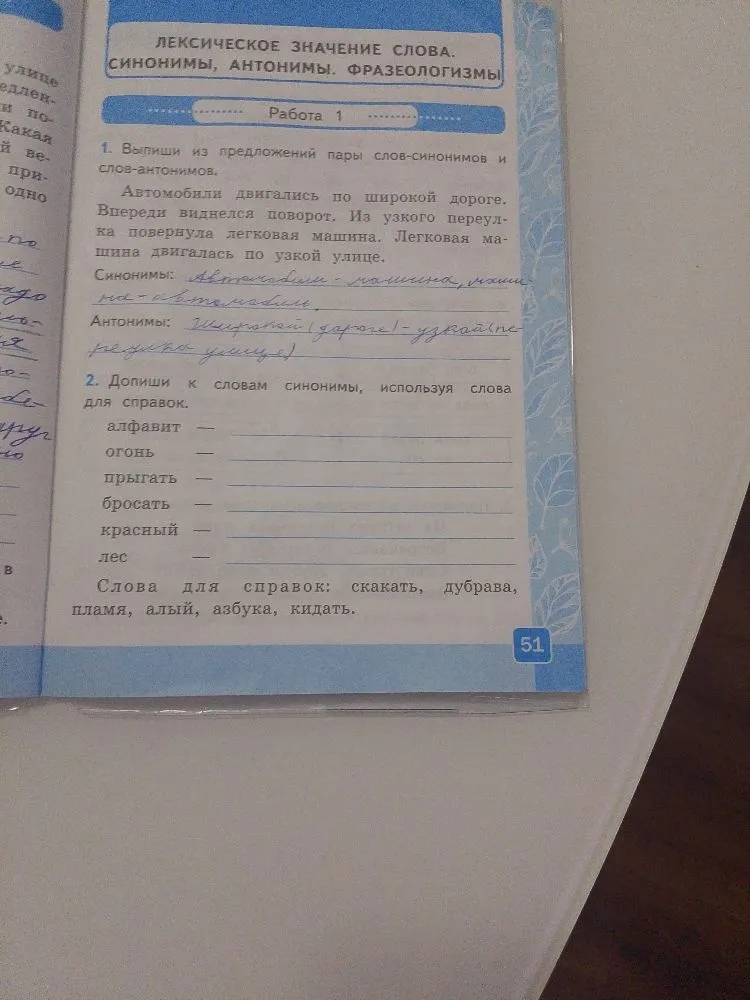 улице
едлен-
и по-
Какая
й ве-
при-
одно
по
ЛЕКСИЧЕСКОЕ ЗНАЧЕНИЕ СЛОВА.
СИНОНИМЫ, АНТОНИМЫ. ФРАЗЕОЛОГИЗМЫ
Работа 1
1. Выпиши из предложений пары слов-синонимов и
слов-антонимов.
Автомобили двигались по широкой дороге.
Впереди виднелся поворот. Из узкого переул-
ка повернула легковая машина. Легковая ма-
шина двигалась по узкой улице.
Синонимы: Автомобили - машина, маши-
на - автомобиль.
Антонимы: Широкой (дороге) - узкой (пе-
реулка улице)
2. Допиши к словам синонимы, используя слова
для справок.
алфавит —
огонь —
прыгать —
бросать —
красный —
лес —
Слова для справок: скакать, дубрава,
пламя, алый, азбука, кидать.
в
51